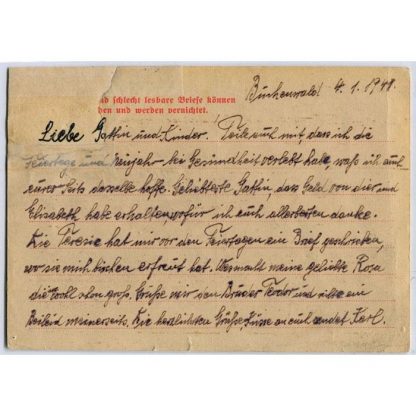 nd schlecht lesbare Briefe können
den und werden vernichtet.
Buchenwald 4. 1. 1944.
Liebe Gattin und Kinder. Teile euch mit, dass ich die
Feiertage und Neujahr bei Gesundheit verlebt habe, was ich auch
eurer seits dasselbe hoffe. Geliebteste Gattin, das Geld von dier und
Elisabeth, habe erhalten, wofür ich euch allerbesten danke.
Die Teresie hat mir vor den Feiertagen ein Brief geschrieben,
wo sie mich bischen erfreut hat. Vermält meine geliebte Rosa
die wohl schon groß. Grüße mir den Bruder Teodor und ein
Beileid meinerseits. Die herzlichsten Grüße, Küsse an euch sendet Karl.